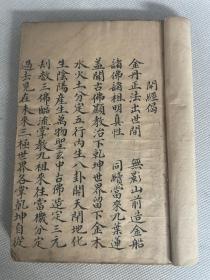 開經偈
金丹正法出世間　無影山前造金船
諸佛諸祖明真性　同續當來九葉蓮
蓋聞古佛顯教治下乾坤世界留下金木
水火土分定五行內生八卦開天闢地化
生陰陽產生萬物聖玄中古佛造定三元
刧數三佛臨流掌教九祖來往當機分定
過去見在未來三極世界各掌乾坤自從